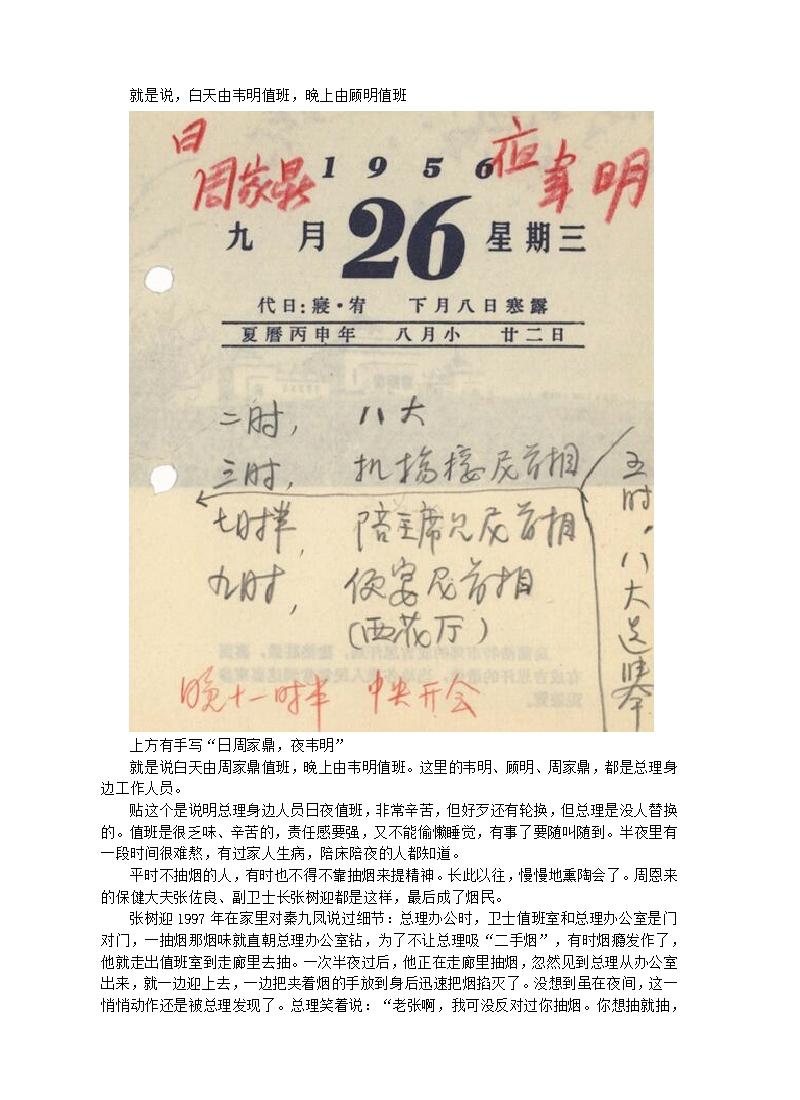 就是说，白天由韦明值班，晚上由顾明值班
日
周家鼎
1956
夜
韋明
九月
26
星期三
代日:寢·宥　下月八日寒露
夏曆丙申年　八月小　廿二日
二时，　八大
三时，　机场接尼首相
五时，八大选举
七时半，　陪主席见尼首相
九时，　便宴尼首相
(西花厅)
晚十一时半　中央开会
上方有手写“日周家鼎，夜韦明”
就是说白天由周家鼎值班，晚上由韦明值班。这里的韦明、顾明、周家鼎，都是总理身
边工作人员。
贴这个是说明总理身边人员日夜值班，非常辛苦，但好歹还有轮换，但总理是没人替换
的。值班是很乏味、辛苦的，责任感要强，又不能偷懒睡觉，有事了要随叫随到。半夜里有
一段时间很难熬，有过家人生病，陪床陪夜的人都知道。
平时不抽烟的人，有时也不得不靠抽烟来提精神。长此以往，慢慢地熏陶会了。周恩来
的保健大夫张佐良、副卫士长张树迎都是这样，最后成了烟民。
张树迎 1997 年在家里对秦九凤说过细节：总理办公时，卫士值班室和总理办公室是门
对门，一抽烟那烟味就直朝总理办公室钻，为了不让总理吸“二手烟”，有时烟瘾发作了，
他就走出值班室到走廊里去抽。一次半夜过后，他正在走廊里抽烟，忽然见到总理从办公室
出来，就一边迎上去，一边把夹着烟的手放到身后迅速把烟掐灭了。没想到虽在夜间，这一
悄悄动作还是被总理发现了。总理笑着说：“老张啊，我可没反对过你抽烟。你想抽就抽，